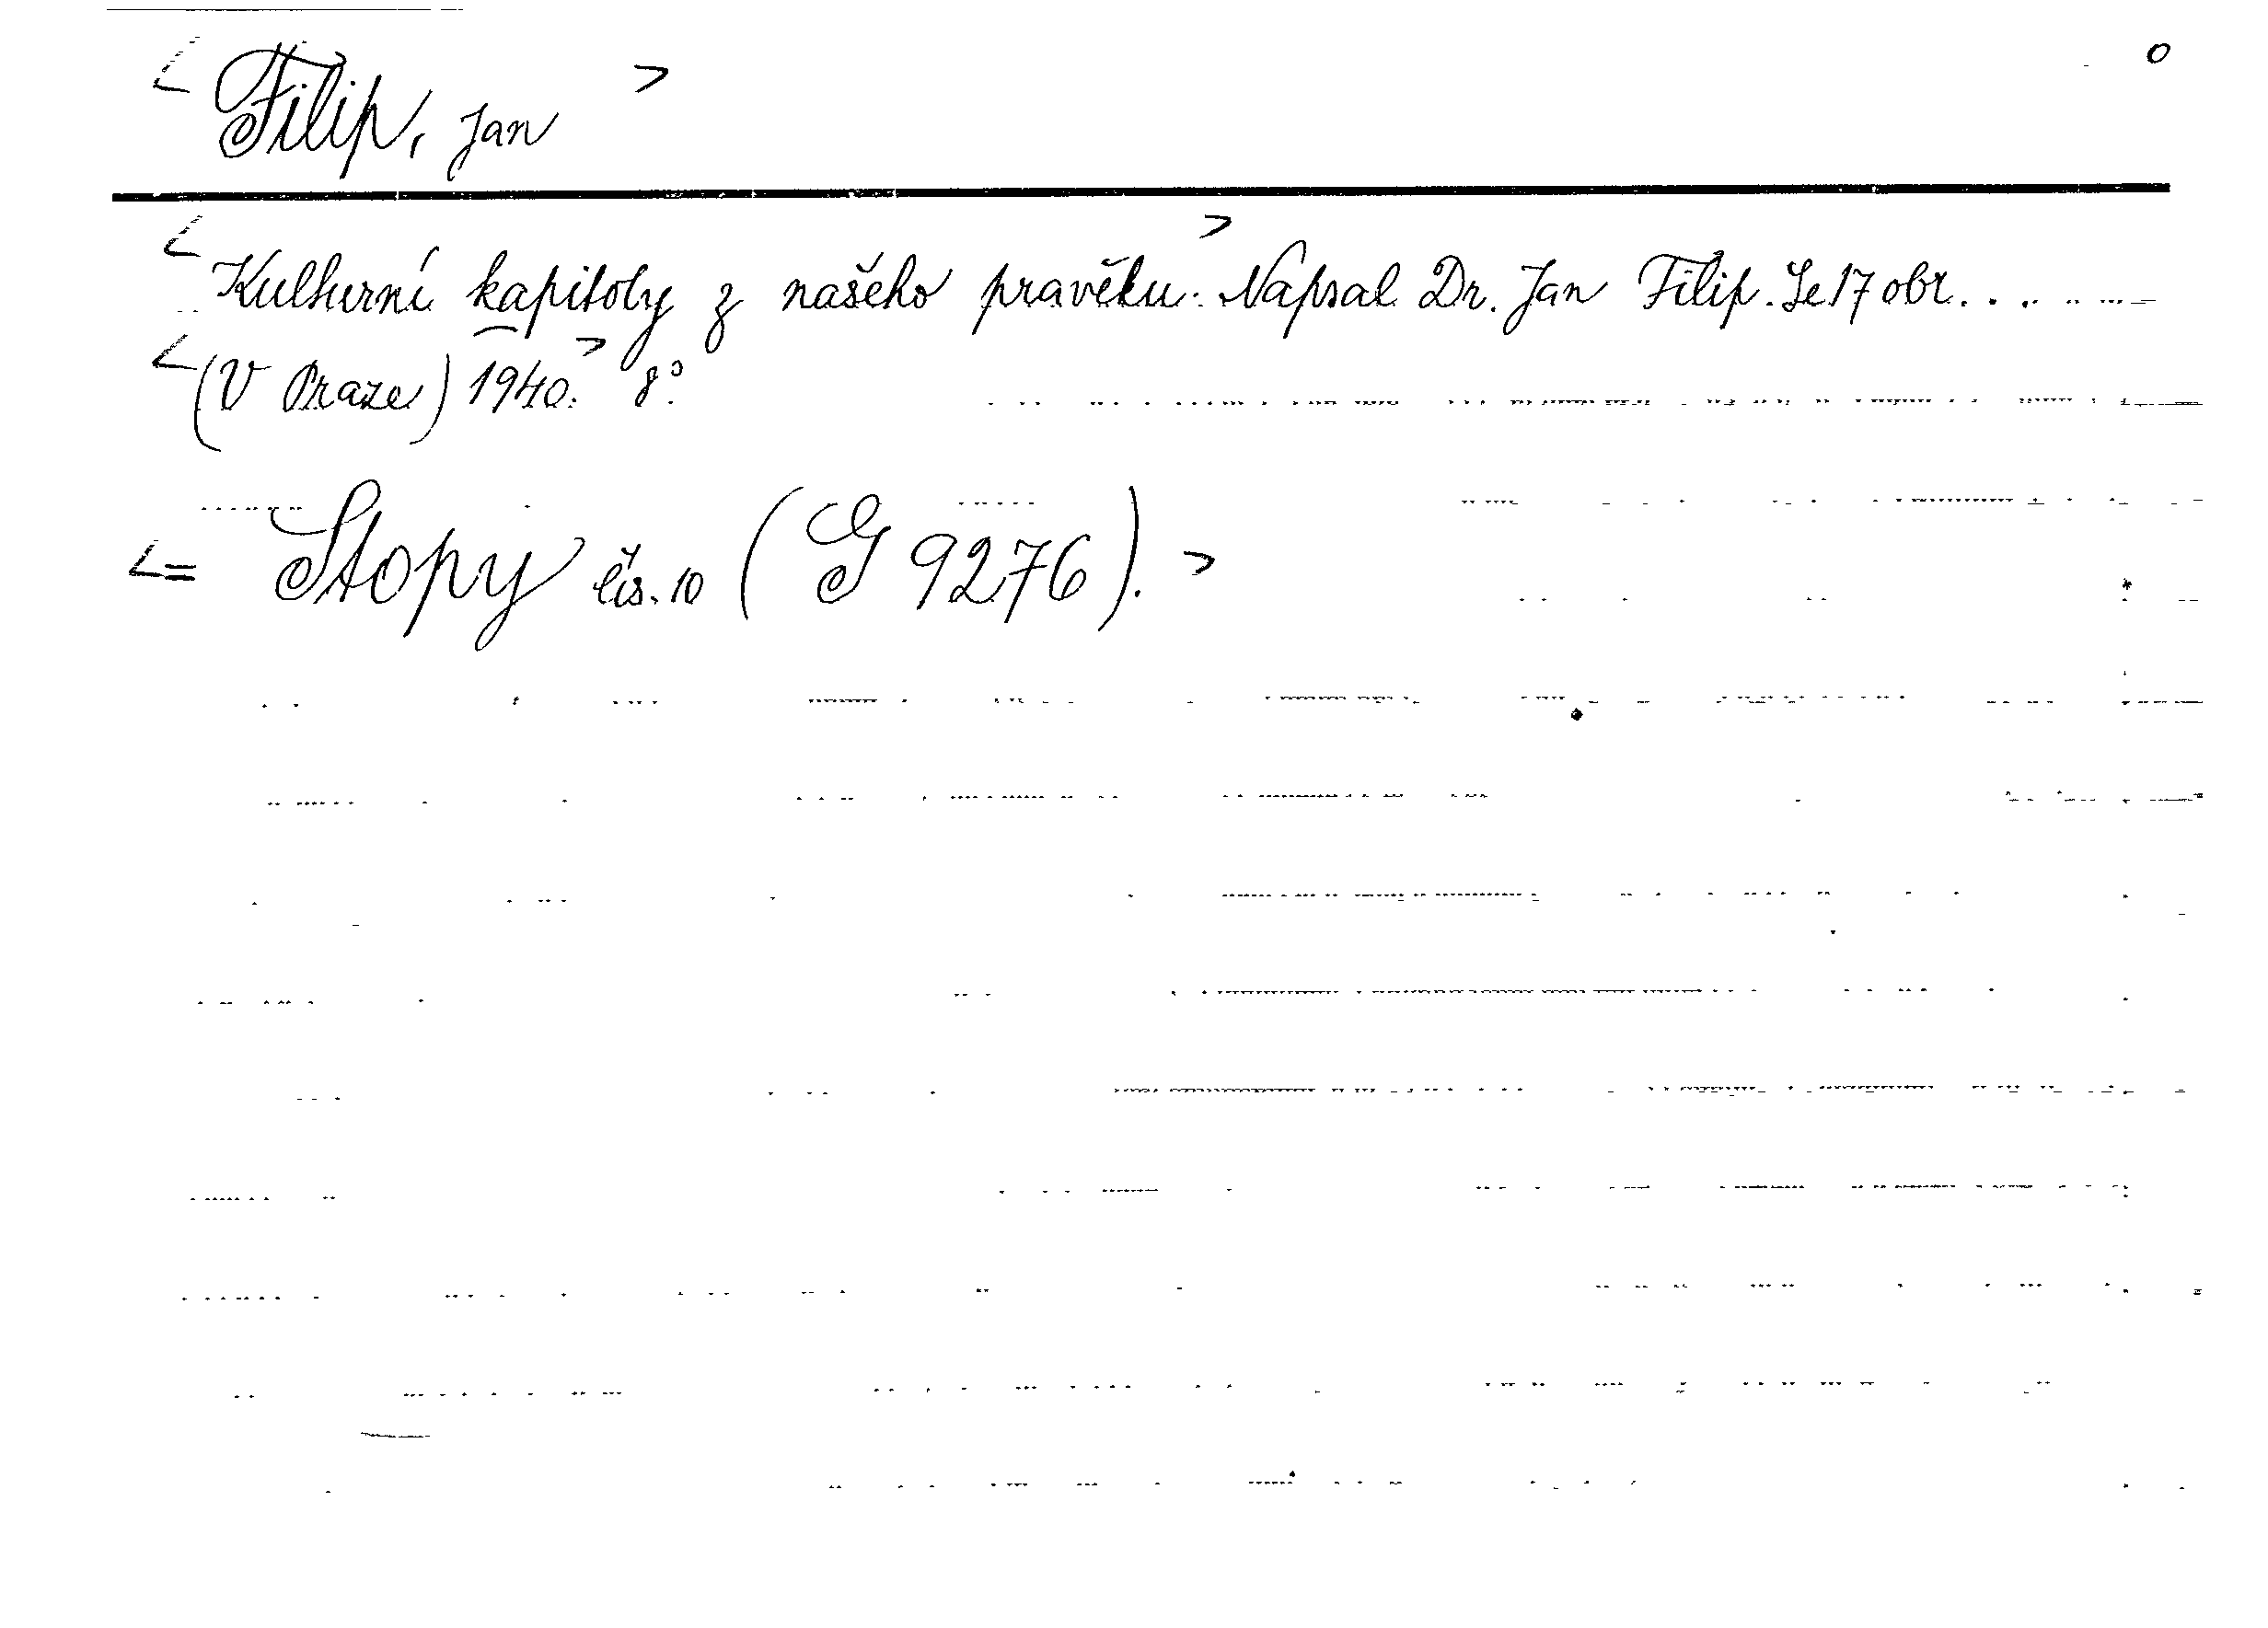 < Filip, Jan > o
< Kulturní kapitoly z našeho pravěku.> Napsal Dr. Jan Filip. Se 17 obr. . .
< (V Praze) 1940.> 8°.
<= Stopy čís. 10 (G 9276). >